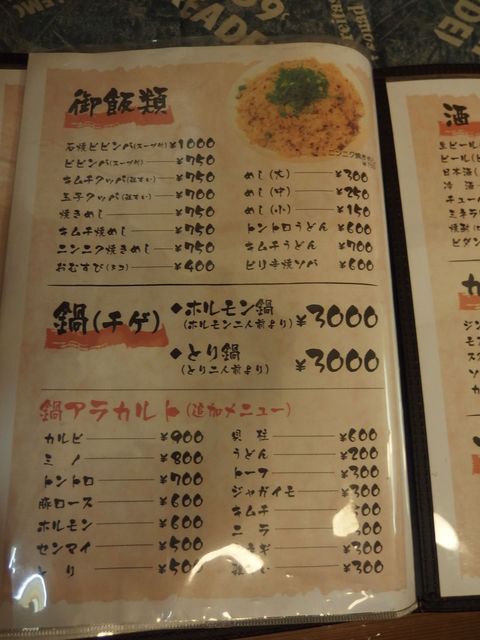 御飯類
石焼ビビンバ(スープ付) ¥1000
ビビンバ(スープ付) ¥750
キムチクッパ ¥750
玉子クッパ ¥700
焼きめし ¥750
キムチ焼めし ¥750
ニンニク焼きめし ¥750
おむすび(3コ) ¥400
めし(大) ¥300
めし(中) ¥250
めし(小) ¥150
トントロうどん ¥600
キムチうどん ¥700
ピリ辛焼ソバ ¥600
鍋(チゲ)
◆ホルモン鍋 ¥3000
(ホルモン二人前より)
◆とり鍋 ¥3000
(とり二人前より)
鍋アラカルト(追加メニュー)
カルビ ¥900
ミノ ¥800
トントロ ¥700
豚ロース ¥600
ホルモン ¥600
センマイ ¥500
とり ¥500
貝柱 ¥600
うどん ¥200
トーフ ¥300
ジャガイモ ¥300
キムチ 300
ニラ 300
ギ ¥300
¥300
酒
生ビール
ビール
日本酒
冷酒
チュー
焼酎
カ
ジン
モス
スク
ソ